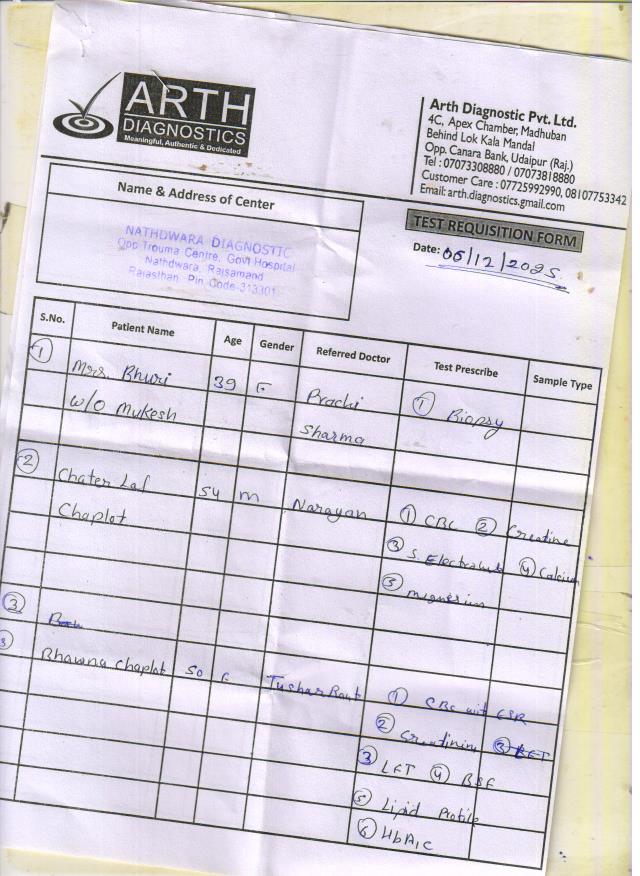 ARTH
DIAGNOSTICS
Meaningful, Authentic & Dedicated
Arth Diagnostic Pvt. Ltd.
4C, Apex Chamber, Madhuban
Behind Lok Kala Mandal
Opp. Canara Bank, Udaipur (Raj.)
Tel : 07073308880 / 07073818880
Customer Care : 07725992990, 08107753342
Email: arth.diagnostics.gmail.com
Name & Address of Center
NATHDWARA DIAGNOSTIC
Opp Trouma Centre, Govt Hospital
Nathdwara, Rajsamand
Rajasthan Pin Code-313301
TEST REQUISITION FORM
Date: 06/12/2025
S.No. Patient Name Age Gender Referred Doctor Test Prescribe Sample Type
1 Mrs. Bhuri 39 F Prachi 1 Biopsy
w/o Mukesh Sharma
2 Chater Lal 54 m Narayan 1 CBC 2 Creatine
Chaplot 3 S. Electrolute 4 Calcium
5 magnesium
3
3 Bhawna Chaplot 50 F Tushar Raut 1 CBC wit ESR
2 Creatinine 3 LFT
3 LFT 4 BSF
5 Lipid Profile
6 HbA1c